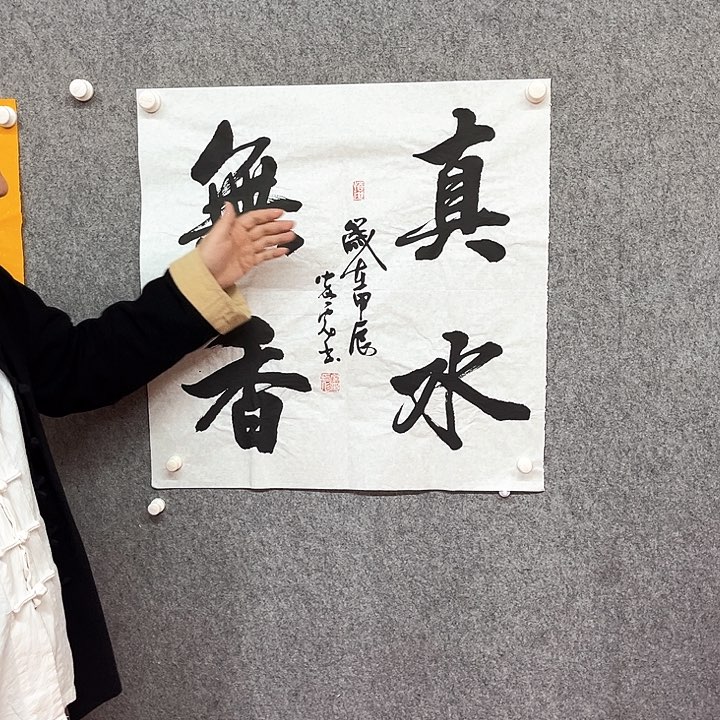 真水
無香
歲在甲辰